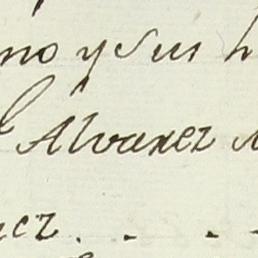 no y Sus h
Alvarez
ez . . . .